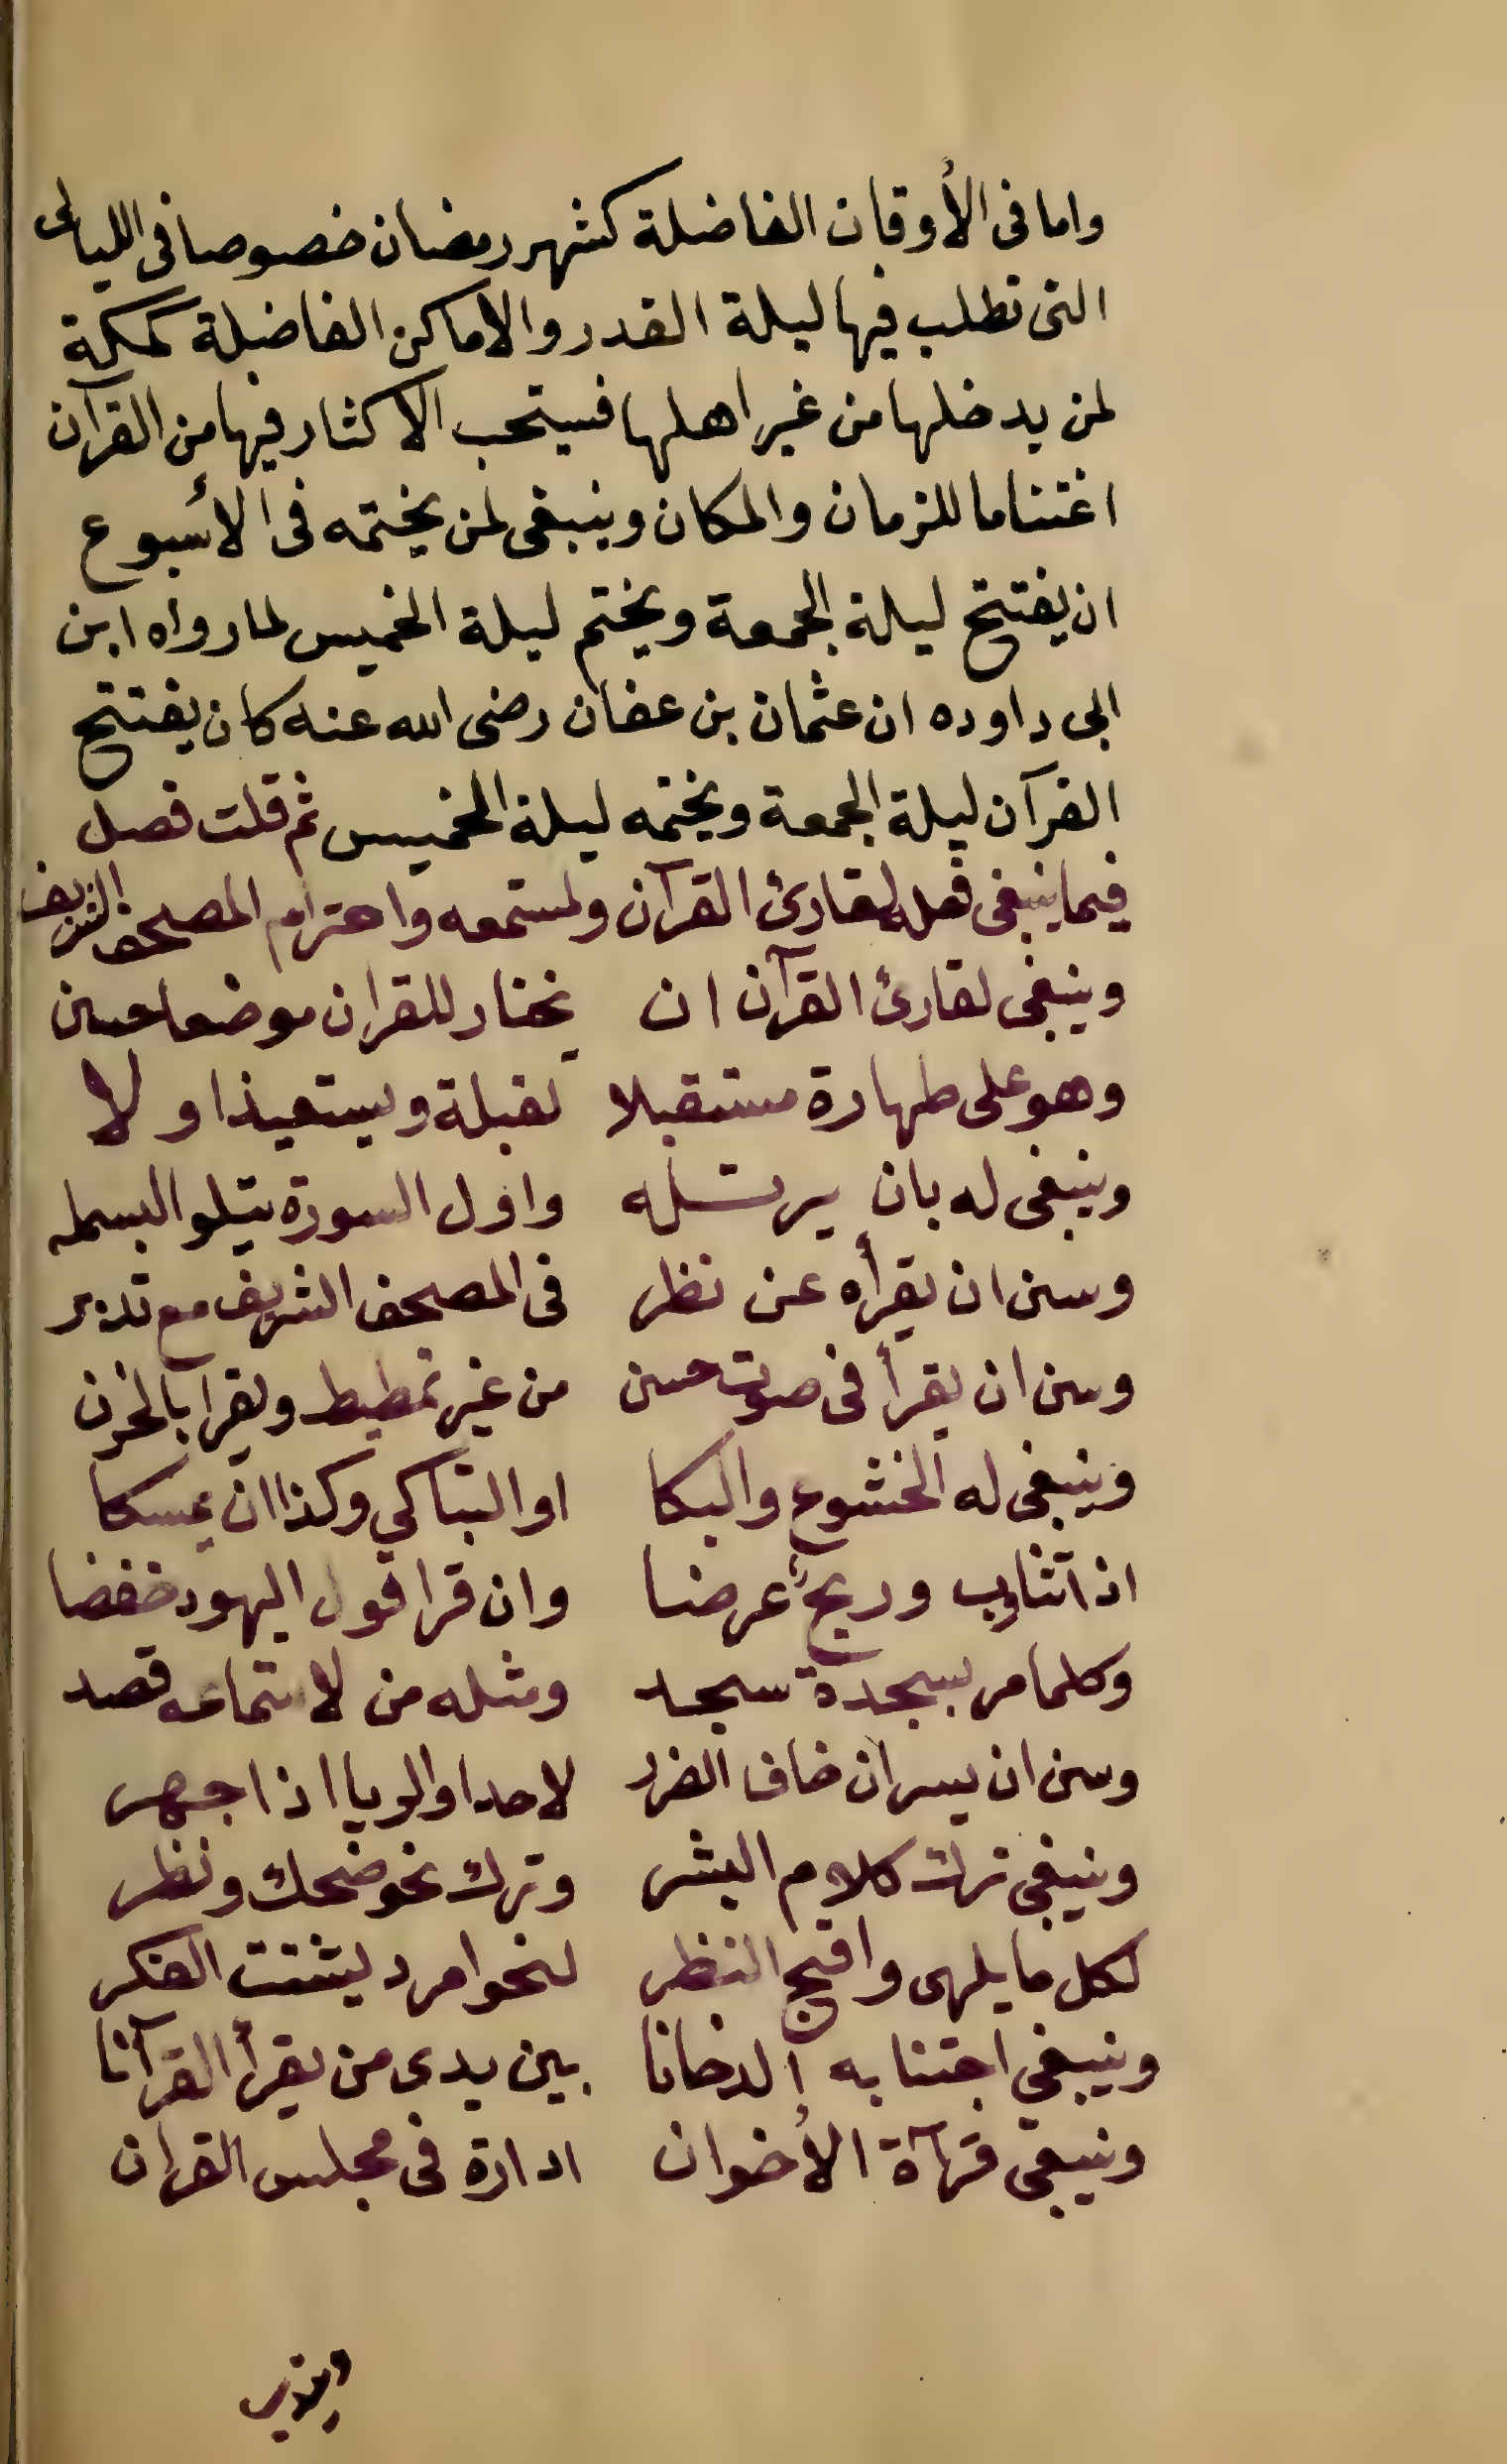 واما فى الأوقات الفاضلة كشهر رمضان خصوصا فى الليالى
التى تطلب فيها ليلة القدر والاماكن الفاضلة كمكة
لمن يدخلها من غير اهلها فيستحب الاكثار فيها من القرآن
اغتناما للزمان والمكان وينبغى لمن يختمه فى الأسبوع
ان يفتتح ليلة الجمعة ويختم ليلة الخميس لما رواه ابن
ابى داوده ان عثمان بن عفان رضى الله عنه كان يفتتح
القرآن ليلة الجمعة ويختمه ليلة الخميس ثم قلت فصل
فيما ينبغى فعله لقارئ القرآن ولمستمعه واحترام المصحف الشريف
وينبغى لقارئ القرآن ان يختار للقران موضعا حسن
وهو على طهارة مستقبلا لقبلة ويستعيذ اولا
وينبغى له بان يرتله واول السورة يتلو البسمله
وسن ان يقرأه عن نظر فى المصحف الشريف مع تدبر
وسن ان يقرأ فى صوت حسن من غير تمطيط ويقرا بالحزن
وينبغى له الخشوع والبكا او التباكي وكذا ان يمسكا
اذا تثاوب وريح عرضا وان قرا قول اليهود خفضا
وكلما مر بسجدة سجد ومثله من لاستماعه قصد
وسن ان يسر ان خاف الضرر لاحد او الريا اذا جهر
وينبغى ترك كلام البشر وترك نحو ضحك ونظر
لكل ما يلهى واقبح النظر لنحو امرد يشتت الفكر
وينبغى اجتنابه الدخانا بين يدى من يقرأ القرآنا
وينبغى قرآة الأخوان ادارة فى مجلس القران